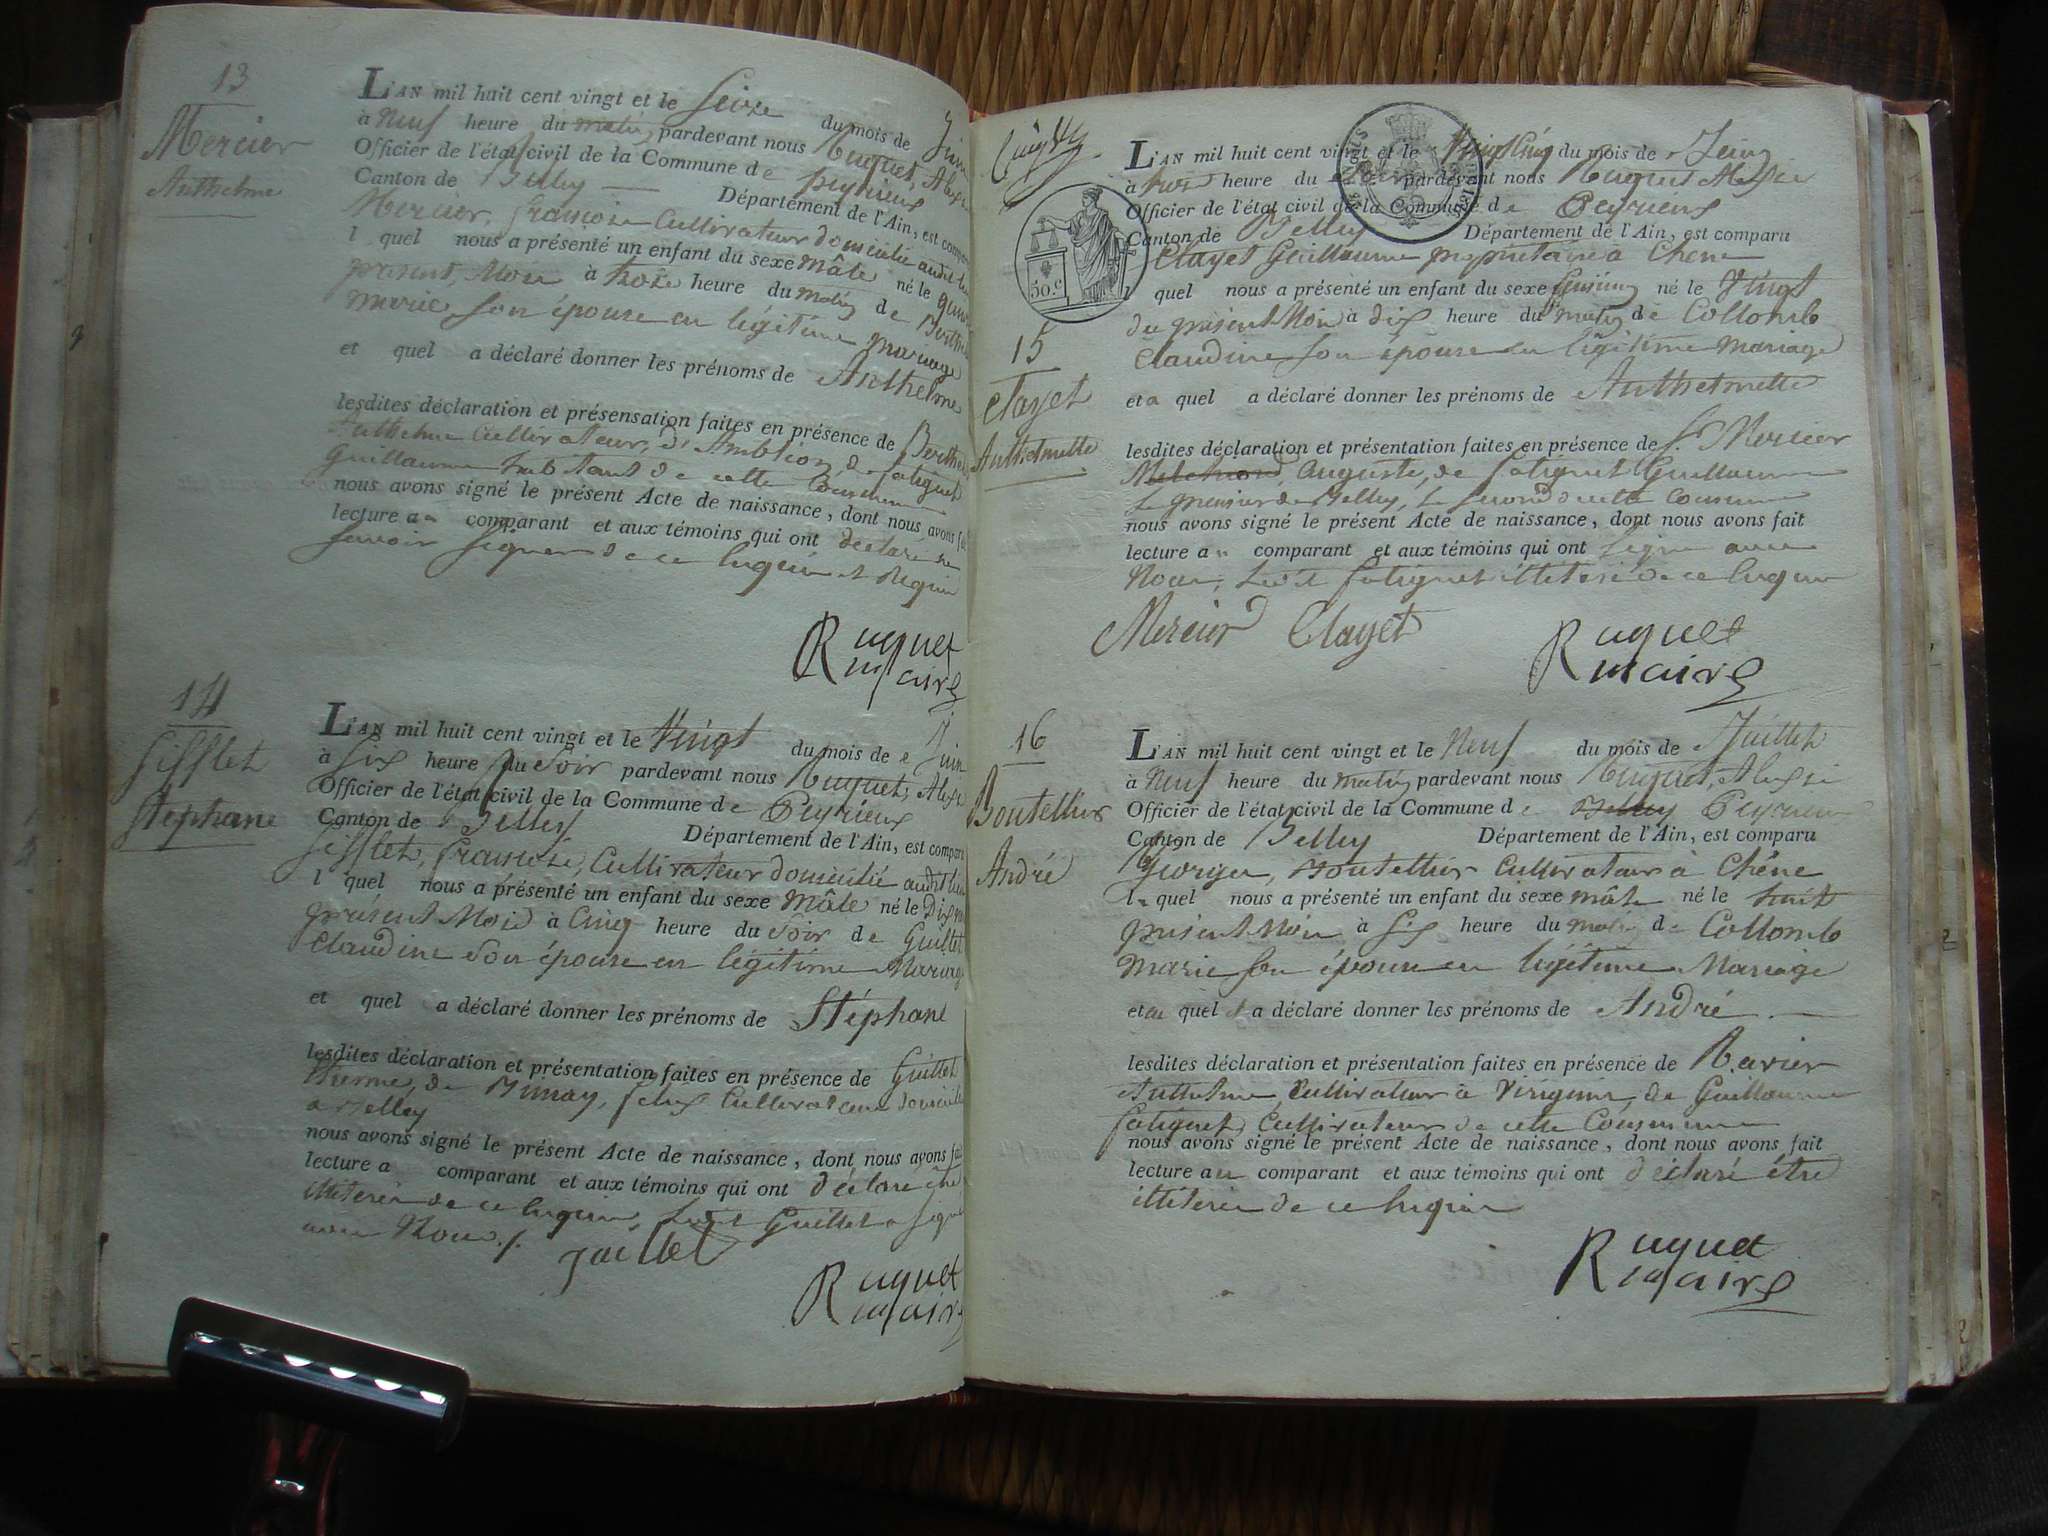 13
Mercier
Anthelme
L'AN mil huit cent vingt et le Seize du mois de Juin
à Neuf heure du matin pardevant nous Ruquet, Alexi
Officier de l'état civil de la Commune de Peyrieux
Canton de Belley Département de l'Ain, est comparu
Mercier, françois Cultivateur domicilié audit lieu
l quel nous a présenté un enfant du sexe mâle né le
présent Mois à heure du matin de
Marie, son épouse en légitime mariage
et quel a déclaré donner les prénoms de Anthelme
lesdites déclaration et présensation faites en présence de
Anthelme Cultivateur, d'Amblion, de fatignet
Guillaume habitant de cette Commune
nous avons signé le présent Acte de naissance, dont nous avons fait
lecture au comparant et aux témoins qui ont déclaré ne
savoir signer de ce enquis et Requis
Ruquet
maire
14
Sifflet
Stéphane
L'AN mil huit cent vingt et le Vingt du mois de Juin
à Six heure du Soir pardevant nous Ruquet, Alexi
Officier de l'état civil de la Commune de Peyrieux
Canton de Belley Département de l'Ain, est comparu
Sifflet, françois, Cultivateur domicilié audit lieu
l quel nous a présenté un enfant du sexe Mâle né le
présent Mois à Cinq heure du Soir de Guillet
Claudine Son épouse en légitime Mariage
et quel a déclaré donner les prénoms de Stéphane
lesdites déclaration et présentation faites en présence de Guillet
de felix Cultivateur domicilié
a Belley
nous avons signé le présent Acte de naissance, dont nous avons fait
lecture a comparant et aux témoins qui ont déclaré être
illiterés de ce enquis, Guillet a signé
avec Nous.
Ruquet
maire
L'AN mil huit cent vingt et le Vingt Cinq du mois de Juin
à heure du pardevant nous Ruquet Alexi
Officier de l'état civil de la Commune de Peyrieux
Canton de Belley Département de l'Ain, est comparu
Clayet Guillaume propriétaire à Chene
50.c
quel nous a présenté un enfant du sexe féminin né le Vingt
du présent Mois à dix heure du matin de Collomb
15
Claudine son épouse en légitime Mariage
Clayet
Anthelmette
et a quel a déclaré donner les prénoms de Anthelmette
lesdites déclaration et présentation faites en présence de Mercier
Auguste, de fatignet Guillaume
le premier de Belley, le second de cette commune
nous avons signé le présent Acte de naissance, dont nous avons fait
lecture au comparant et aux témoins qui ont signé avec
Nous, fatignet illiteré de ce enquis
Mercier Clayet
Ruquet
maire
16
Boutellier
André
L'AN mil huit cent vingt et le Neuf du mois de Juillet
à Neuf heure du matin pardevant nous Ruquet, Alexi
Officier de l'état civil de la Commune de Belley Peyrieux
Canton de Belley Département de l'Ain, est comparu
George, Boutellier Cultivateur à Chêne
le quel nous a présenté un enfant du sexe mâle né le huit
présent Mois à Six heure du matin de Collomb
Marie son épouse en légitime Mariage
et au quel il a déclaré donner les prénoms de André
lesdites déclaration et présentation faites en présence de Ravier
Anthelme Cultivateur à Virignin, de Guillaume
fatignet, Cultivateur de cette Commune
nous avons signé le présent Acte de naissance, dont nous avons fait
lecture au comparant et aux témoins qui ont déclaré être
illiterés de ce enquis
Ruquet
maire